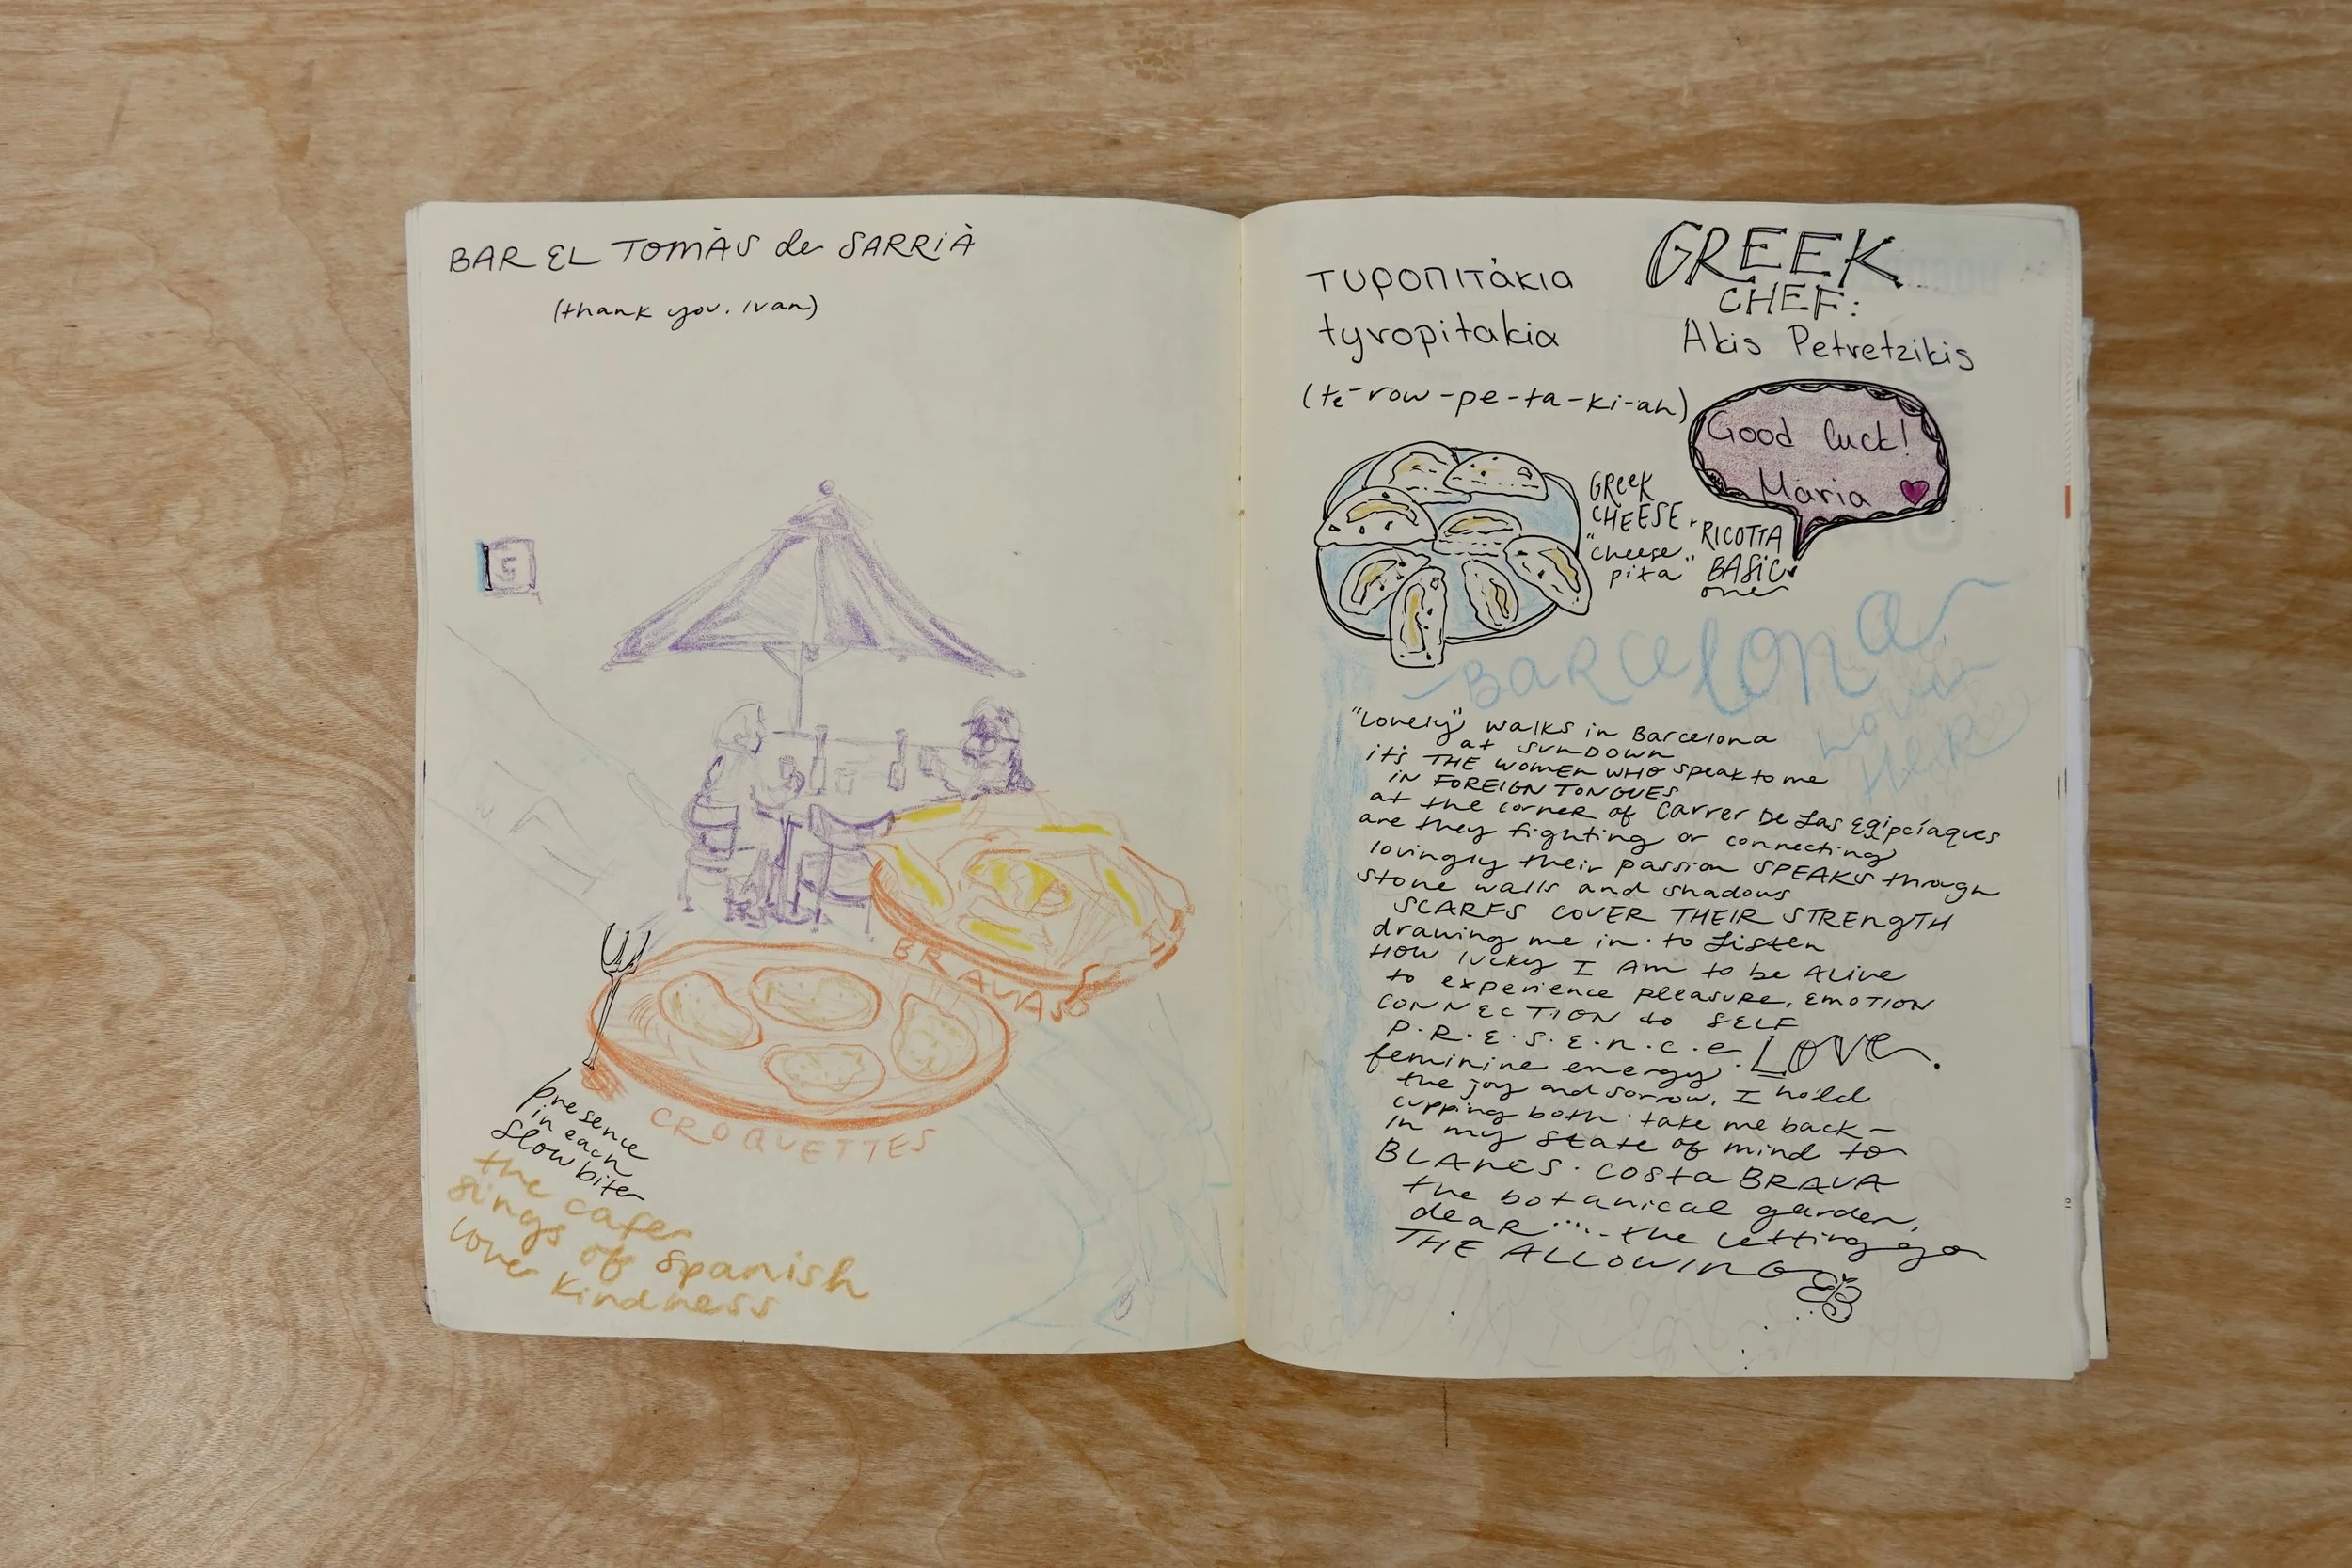 BAR EL TOMÀS de SARRIÀ
(thank you, Ivan)
5
BRAVAS
CROQUETTES
presence
in each
slow bite
the cafe
sings of Spanish
love kindness
GREEK
CHEF:
Akis Petretzikis
τυροπιτάκια
tyropitakia
(te-row-pe-ta-ki-ah)
Good luck!
Maria
GREEK
CHEESE
"cheese
pita"
RICOTTA
BASIC
one
BARCELONA
"lonely" walks in Barcelona
at SUNDOWN
it's THE WOMEN WHO speak to me
in FOREIGN TONGUES
at the corner of Carrer De Las Egipcíaques
are they fighting or connecting
lovingly their passion SPEAKS through
stone walls and shadows
SCARFS COVER THEIR STRENGTH
drawing me in. to Listen
HOW lucky I Am to be ALive
to experience pleasure, EMOTION
CONNECTION to SELF
P.R.E.S.E.N.C.E. LOVE.
feminine energy.
the joy and sorrow, I hold
cupping both. take me back —
in my state of mind to
BLANES. COSTA BRAVA
the botanical garden,
dear .... the letting go
THE ALLOWING